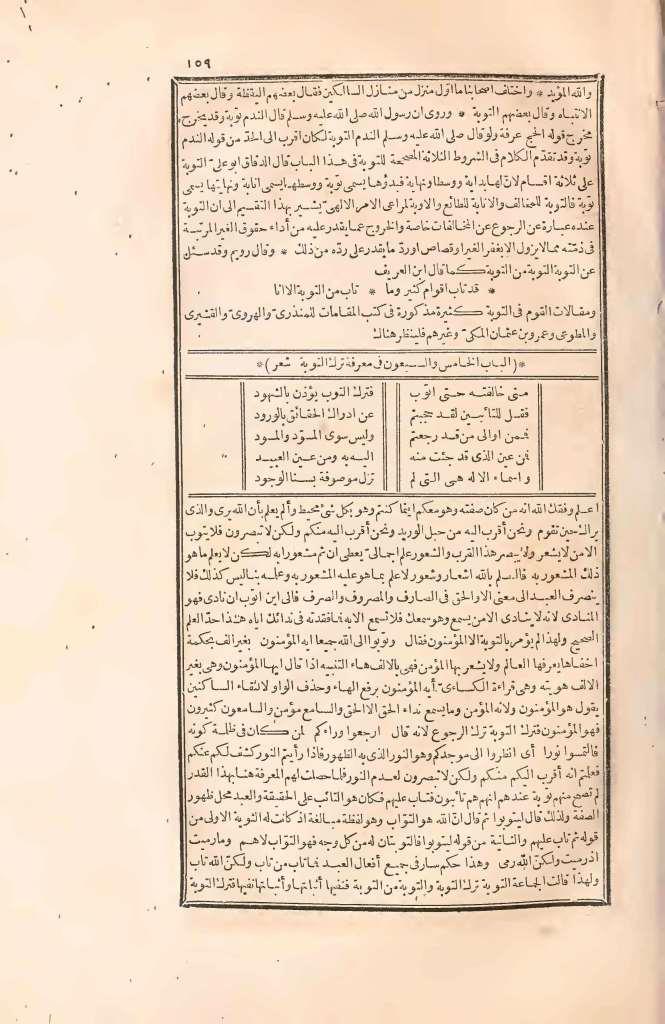 ١٥٩
والله المؤيد * واختلف اصحابنا ما اوّل منزل من منازل السالكين فقال بعضهم اليقظة وقال بعضهم
الانتباه وقال بعضهم التوبة * وروى ان رسول الله صلى الله عليه وسلم قال الندم توبة وقد مخرج
مخرج قوله الحج عرفة ولو قال صلى الله عليه وسلم الندم التوبة لكان اقرب الى الحدّ من قوله الندم
توبة وقد تقدّم الكلام فى الشروط الثلاثة المصححة للتوبة فى هذا الباب قال الدقاق ابو على التوبة
على ثلاثة اقسام لانّ لها بداية ووسطا ونهاية فبدؤها يسمى توبة ووسطها يسمى انابة ونهايتها يسمى
توبة فالتوبة للمخالف والانابة للطائع والاوبة لمراعى الامر الالهىّ يشير بهذا التقسيم الى ان التوبة
عنده عبارة عن الرجوع عن المخالفات خاصة والخروج عما يقدر عليه من أداء حقوق الغير المرتبة
فى ذمّته مما لا يزول الا بعفو الغير او قصاص اوردّ ما يقدر على ردّه من ذلك * وقال رويم وقد سئل
عن التوبة التوبة من التوبة كما قال ابن العريف
* قد تاب اقوام كثير وما * تاب من التوبة الا انا
ومقالات القوم فى التوبة كثيرة مذكورة فى كتب المقامات للمنذرى والهروى والقشيرى
والمطوعى وعمرو بن عثمان المكى وغيرهم فلينظر هناك
* (الباب الخامس والسبعون فى معرفة ترك التوبة شعر) *
متى خالفته حتى اتوب فترك التوب يؤذن بالشهود
فقل للتائبين لقد حجبتم عن ادراك الحقائق بالورود
فممن اوالى من قد رجعتم وليس سوى المودّ والمود
فمن عين الذى قد جئت منه اليه به ومن عين العبيد
واسماء الاله هى التى لم تزل موصوفة بسنا الوجود
اعلم وفقك الله انه من كان صفته وهو معكم اينما كنتم وهو بكل شئ محيط وألم يعلم بأن الله يرى والذى
يراك حين تقوم ونحن أقرب اليه من حبل الوريد ونحن أقرب اليه منكم ولكن لا تبصرون فلا يتوب
الا من لا يشعر ولا يبصر هذا القرب والشعور علم اجمالىّ يعطى ان ثم مشعورا به لكن لا يعلم ما هو
ذلك المشعور به فالعلم بالله اشعار وشعور لا علم بما هو عليه المشعور به وعلمه بنا ليس كذلك فلا
ينصرف العبد الى معنى الا والحق فى الصارف والمصروف والصرف فالى اين اتوب ان نادى فهو
المنادى لانه لا ينادى الا من يسمع وهو سمعك فلا تسمع الا به فما فقدته فى ندائك اياه هذا حدّ العلم
الصحيح ولهذا لم يؤمر بالتوبة الا المؤمنون فقال وتوبوا الى الله جميعا ايه المؤمنون بغير الف بحكمة
اخفاها يعرفها العالم ولا يشعر بها المؤمن فهى بالالف هاء التنبيه اذا قال ايها المؤمنون وهى بغير
الالف هويته وهى قراءة الكسائى أيه المؤمنون برفع الهاء وحذف الواو لالتقاء الساكنين
يقول هو المؤمنون ولانه المؤمن وما يسمع نداء الحق الا الحق والسامع مؤمن والسامعون كثيرون
فهو المؤمنون فترك التوبة ترك الرجوع لانه قال ارجعوا وراءكم لمن كان فى ظلمة كونه
فالتمسوا نورا أى انظروا الى موجدكم وهو النور الذى به الظهور فاذا رأيتم النور كشف لكم عنكم
فعلمتم انه أقرب اليكم منكم ولكن لا تبصرون لعدم النور فلما حصلت لهم المعرفة هنا بهذا القدر
لم تصح منهم توبة عندهم انهم هم تائبون فتاب عليهم فكان هو التائب على الحقيقة والعبد محل ظهور
الصفة ولذلك قال ليتوبوا ثم قال انّ الله هو التوّاب وهو لفظة مبالغة اذ كانت له التوبة الاولى من
قوله ثم تاب عليهم والثانية من قوله ليتوبوا فالتوبتان له من كل وجه فهو التوّاب لا هم وما رميت
اذ رميت ولكنّ الله رمى وهذا حكم سار فى جميع أفعال العبد فما تاب من تاب ولكنّ الله تاب
ولهذا قالت الجماعة التوبة ترك التوبة والتوبة من التوبة فنفيها أثباتها وأثباتها نفيها فترك التوبة